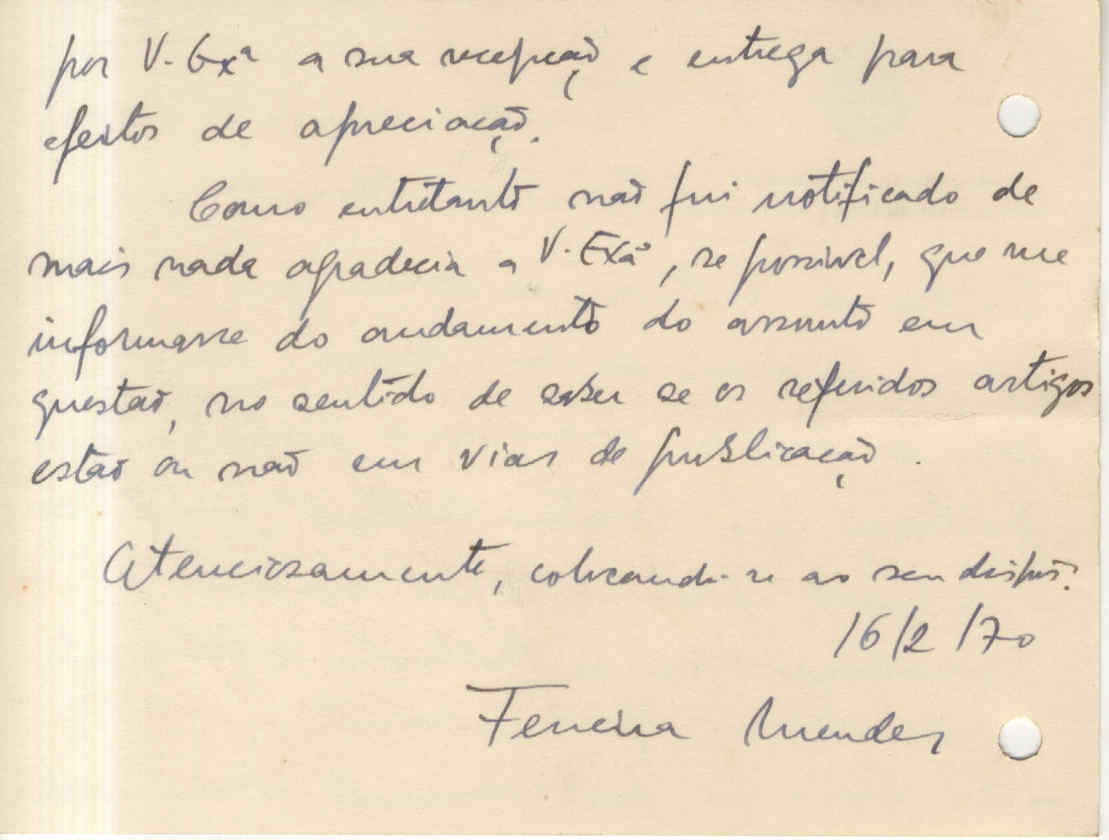 por V. Exª a sua recepção e entrega para
efeitos de apreciação.
Como entretanto não fui notificado de
mais nada agradecia a V. Exaª, se possivel, que me
informasse do andamento do assunto em
questão, no sentido de saber se os referidos artigos
estão ou não em vias de publicação.
Atenciosamente, colocando-se ao seu dispôr.
16/2/70
Ferreira Mendes